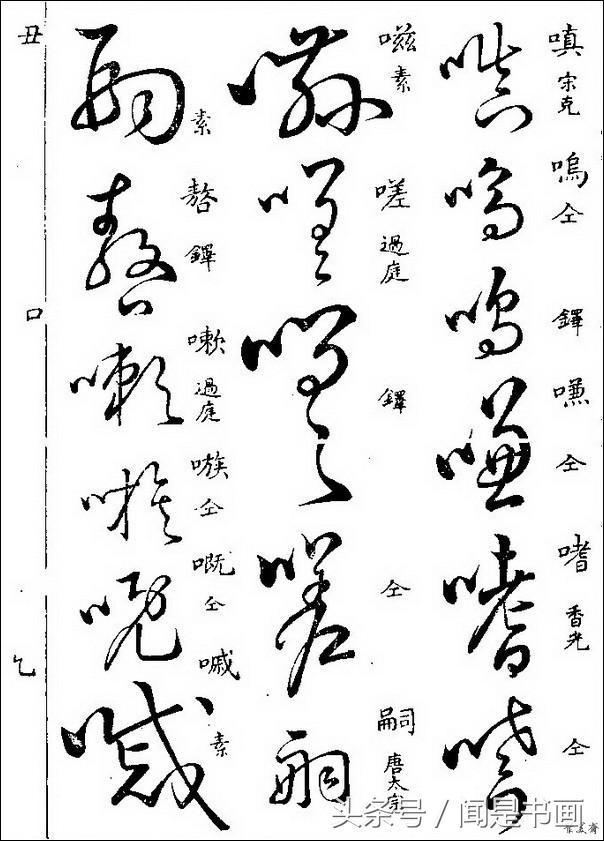 嗔 宋克
嗚 仝
鐸
嗛 仝
嗜 香光
仝
嗞 素
嗟 過庭
鐸
仝
嗣 唐太宗
素
嗸 鐸
嗽 過庭
嗾 仝
嘅 仝
嘁 素
丑
口
七
头条号 / 闻是书画